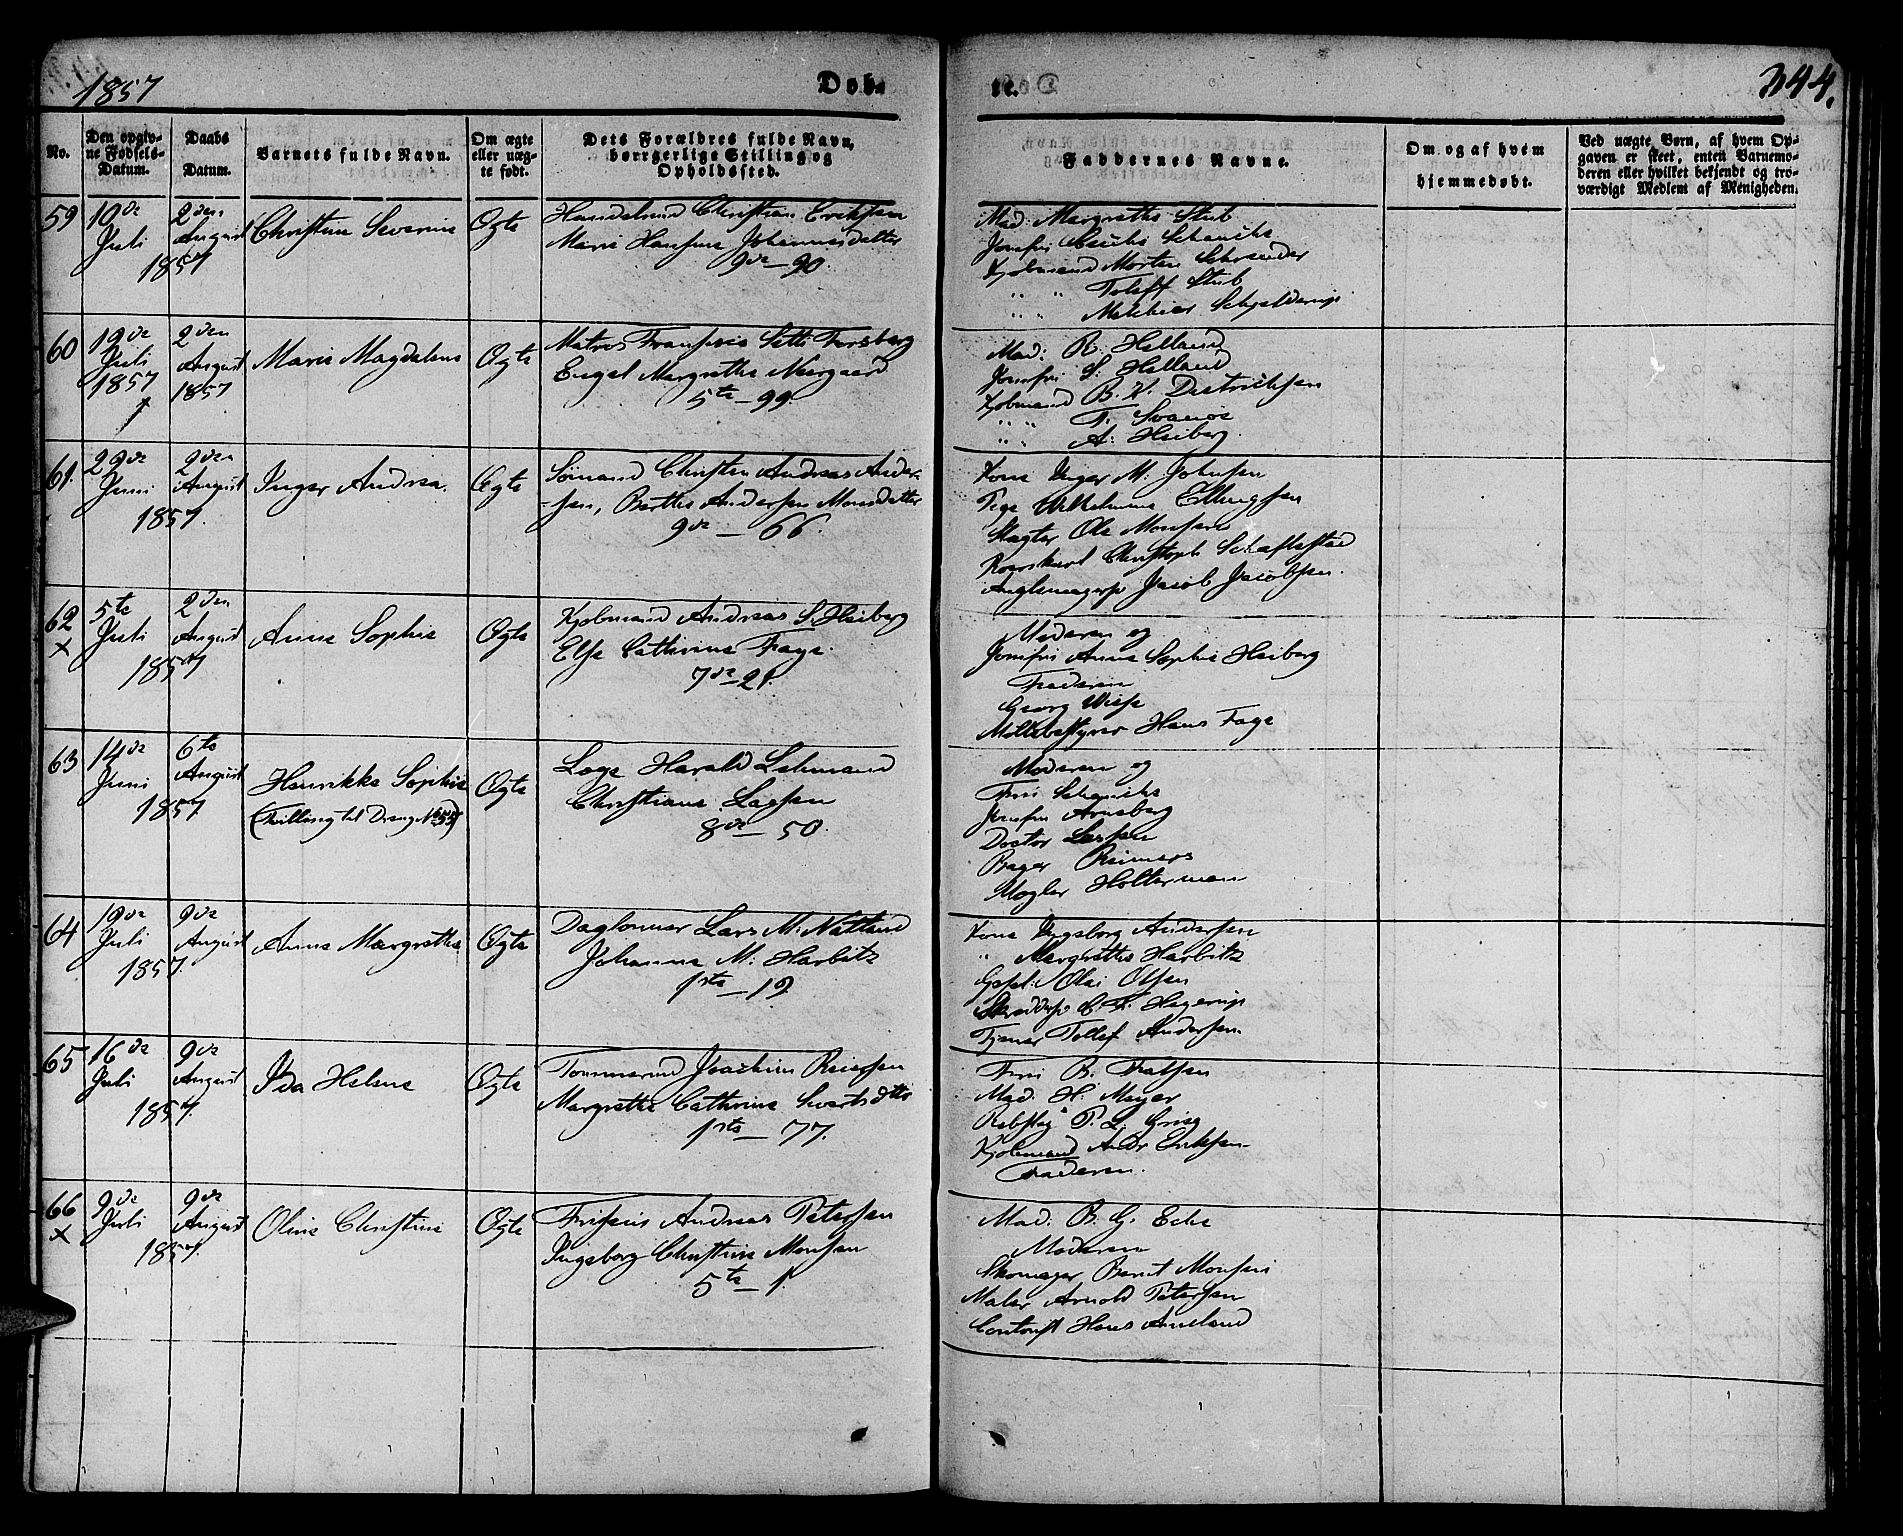 1857
Døb-
te.
344.
No.
Den opgiv-
ne Fødsels-
Datum.
Daabs
Datum.
Barnets fulde Navn.
Om ægte
eller uæg-
te født.
Dets Forældres fulde Navn,
borrgerlige Stilling og
Opholdssted.
Faddernes Navne.
Om og af hvem
hjemmedøbt.
Ved uægte Børn, af hvem Op-
gaven er skeet, enten Barnemo-
deren eller hvilket bekjendt og tro-
værdigt Medlem af Menigheden.
59
10de
Juli
2den
August
1857
Christine Severine
Ægte
Handelsmd Christian Eriksen
Marie Hansine Johannesdatter
9de – 90.
Mad: Margrethe Stub
Jomfru
Kjøbmand Morten Schrøuder
" " Toleff Stub
" " Melchior Schjelderup
60
19de
Juli
1857
2den
August
1857
Marie Magdalene
Ægte
Matros
Engel Margrethe Neergaard
5te – 99.
Mad: R. Helland
Jomfru S. Helland
Kjøbmand B. K. Didrichsen
" " T. Svanøe
" " A. Heiberg.
61.
29de
Juni
2den
August
1857.
Inger Andrea.
Ægte
Sømand Christen Andreas Ander-
-sen, Berthe Andersen Monsdatter
9de – 66.
Kone Inger M. Johnsen
Pige Wilhelmine Ellingsen
Slagter Ole Monsen
Christoph
Jacob Jacobsen.
62
x
5te
Juli
2den
August
1857
Anne Sophie
Ægte
Kjøbmand Andreas S. Heiberg
Else Cathrine Faye.
7de – 21.
Moderen og
Jomfru Anne Sophie Heiberg
Faderen
Georg Wiese
Møllebestyrer Hans Faye
63
14de
Juni
6te
August
1857.
Henrikke Sophie
(Tvilling til Dreng No 55)
Ægte
Læge Harald Lehmand
Christiane Lassen
8de – 50.
Moderen og
Fru
Jomfru Arnsberg
Doctor Lassen
Bager Reimers
Mægler Holterman
64
19de
Juli
9de
August
1857.
Anne Margrethe
Ægte
Daglønner Lars M. Natland
Johanne M. Harbitz
1ste – 19.
Kone Ingeborg Andersen
" Margrethe Harbitz
Gesel: Olai Olsen
C. F. Hagerup
Tjener Tollef Andersen.
65
16de
Juli
9de
August
1857.
Ida Helene
Ægte
Tømmermd Joachim Reiersen
Margrethe Cathrine
1ste – 77.
Fru B.
Mad. H. Meyer
P. L. Grieg
Kjøbmand Andr Eriksen
Faderen.
66
x
9de
Juli
9de
August
1857.
Oline Christine
Ægte
Andreas Petersen
Ingeborg Christine Monsen
5te – 1.
Mad. B. G.
Moderen
Skomager Bernt Monsen
Maler Arnold Petersen
Contorist Hans